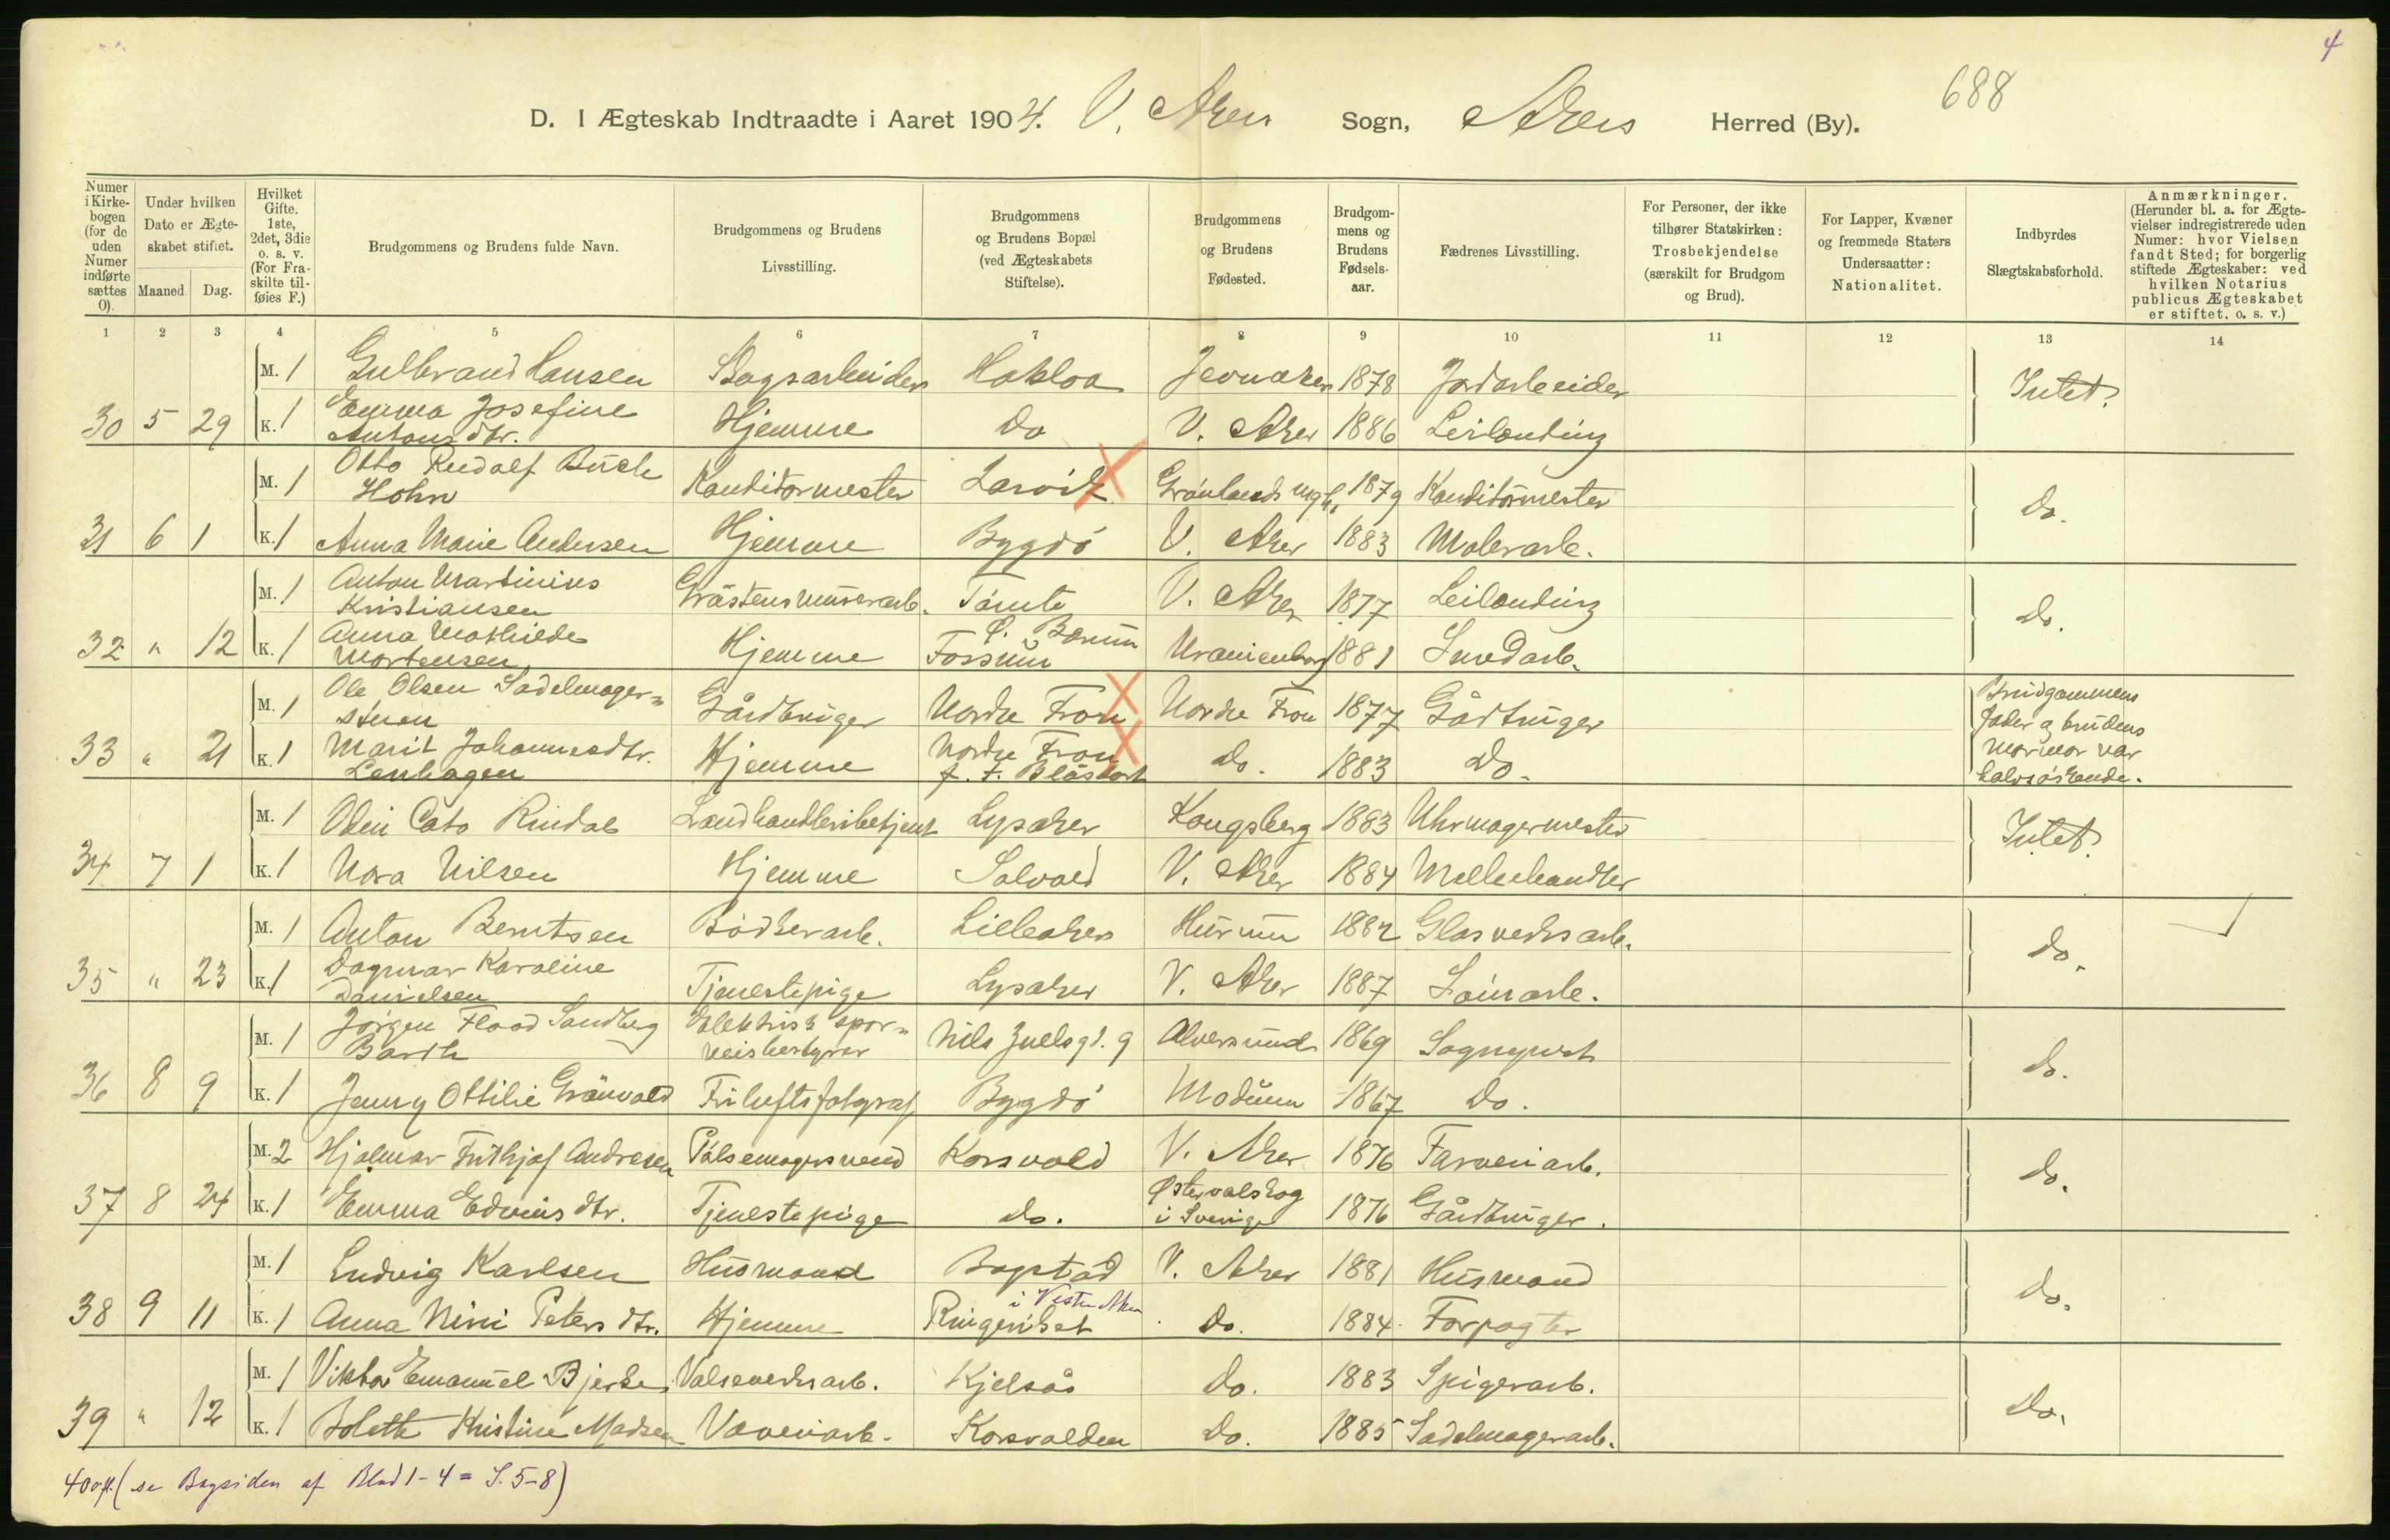 4
688
D. I Ægteskab Indtraadte i Aaret 1904. V. Aker Sogn, Akers Herred (By).
Numer i Kirkebogen (for de uden Numer indførte sættes 0).
Under hvilken Dato er Ægteskabet stiftet.
Maaned. Dag.
Hvilket Gifte. 1ste, 2det, 3die o. s. v. (For Fraskilte tilføies F.)
Brudgommens og Brudens fulde Navn.
Brudgommens og Brudens Livsstilling.
Brudgommens og Brudens Bopæl (ved Ægteskabets Stiftelse).
Brudgommens og Brudens Fødested.
Brudgommens og Brudens Fødselsaar.
Fædrenes Livsstilling.
For Personer, der ikke tilhører Statskirken: Trosbekjendelse (særskilt for Brudgom og Brud).
For Lapper, Kvæner og fremmede Staters Undersaatter: Nationalitet.
Indbyrdes Slægtskabsforhold.
Anmærkninger. (Herunder bl. a. for Ægtevielser indregistrerede uden Numer: hvor Vielsen fandt Sted; for borgerlig stiftede Ægteskaber: ved hvilken Notarius publicus Ægteskabet er stiftet, o. s. v.)
1 2 3 4 5 6 7 8 9 10 11 12 13 14
M. 1 Gulbrand Hansen Skogsarbeider Hakloa Jevnaker 1878 Jordarbeider Intet.
30 5 29 K. 1 Emma Josefine Antonsdtr. Hjemme do V. Aker 1886 Leilænding
M. 1 Otto Rudolf Buch Hohn Konditormester Larvik Grönlands mgh. 1879 Konditormester do.
31 6 1 K. 1 Anna Marie Andersen Hjemme Bygdö V. Aker 1883 Malerarb.
M. 1 Anton Martinius Kristiansen Gråstensmurerarb. Tömte V. Aker 1877 Leilænding do.
32 " 12 K. 1 Anna Mathilde Mortensen Hjemme Fossum Ö. Bærum Uranienborg 1881 Smedarb.
M. 1 Ole Olsen Sadelmagerstuen Gårdbruger Nordre Fron Nordre Fron 1877 Gårdbruger Brudgommens fader og brudens mormor var halvsöskende.
33 " 21 K. 1 Marit Johannesdtr. Lenhagen Hjemme Nordre Fron f. t. do. 1883 Do.
M. 1 Odin Cato Rindal Landhandleribetjent Lysaker Kongsberg 1883 Uhrmagermester Intet.
34 7 1 K. 1 Nora Nilsen Hjemme Solvold V. Aker 1884 Melkehandler
M. 1 Anton Berntsen Bödkerarb. Lilleaker Hurum 1882 Glasverksarb. do.
35 " 23 K. 1 Dagmar Karoline Danielsen Tjenestepige Lysaker V. Aker 1887
M. 1 Jörgen Flood Sandberg Barth Elektrisk sporveisbestyrer Nils Juelsgd. 9 Alversund 1869 Sogneprest do.
36 8 9 K. 1 Jenny Ottilie Grönvold Friluftsfotograf Bygdö Modum 1867 Do.
M. 2 Hjalmar Frithjof Andresen Pölsemagersvend Korsvold V. Aker 1876 Farveriarb. do.
37 8 24 K. 1 Emma Edvinsdtr. Tjenestepige do. Østervalskog i Sverige 1876 Gårdbruger.
M. 1 Ludvig Karlsen Husmand Bogstad V. Aker 1881 Husmand do.
38 9 11 K. 1 Anna Nini Petersdtr. Hjemme Ringeriket i Vestre Aker do. 1884 Forpagter
M. 1 Viktor Emanuel Bjerke Valseverksarb. Kjelsås do. 1883 Spigerarb. Do.
39 " 12 K. 1 Bolette Kristine Madsen Væveriarb. Korsvolden Do. 1885 Sadelmagerarb.
40 ff. (se Bagsiden af Blad 1-4 = S. 5-8)